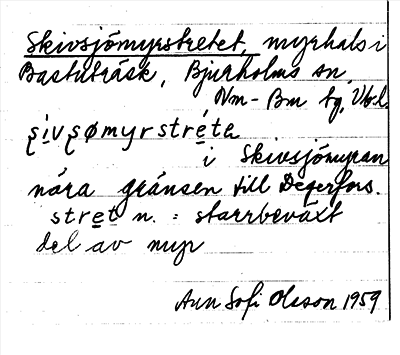 Skivsjömyrstretet, myrhals i
Bastuträsk, Bjurholms sn,
Nm-Bm tg, Vb.l.
ʂivʂømyrstréta
i Skivsjömyran
nära gränsen till Degerfors.
stret n. : starrbeväxt
del av myr
Ann Sofi Olsson 1959